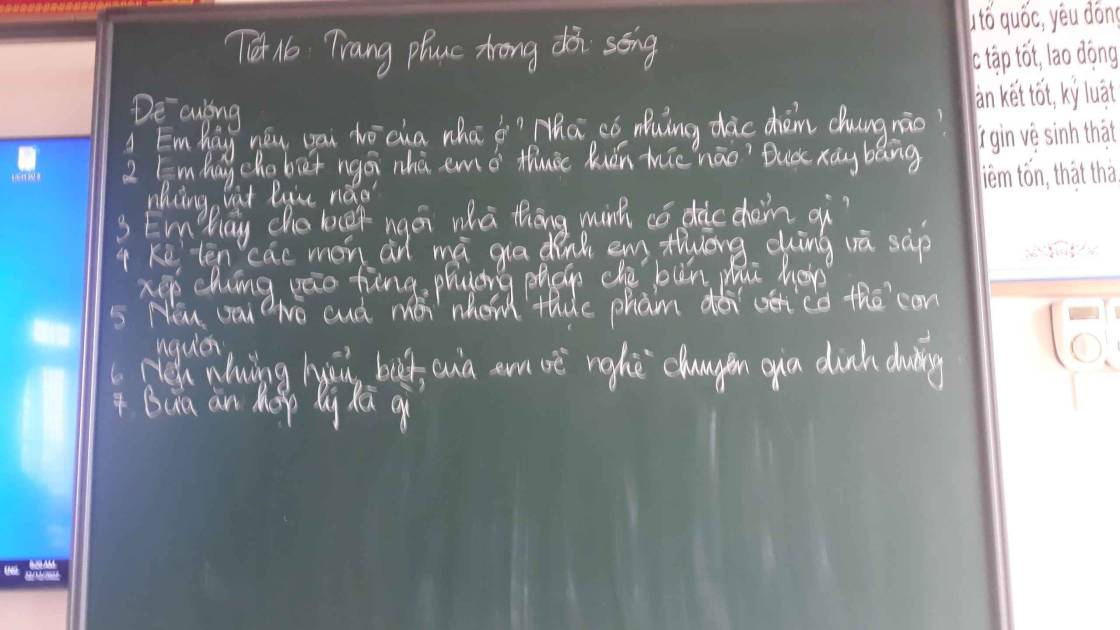 Tiết 16: Trang phục trong đời sống
Đề cương
1 Em hãy nêu vai trò của nhà ở? Nhà có những đặc điểm chung nào?
2 Em hãy cho biết ngôi nhà em ở thuộc kiến trúc nào? Được xây bằng
những vật liệu nào?
3 Em hãy cho biết ngôi nhà thông minh có đặc điểm gì?
4 Kể tên các món ăn mà gia đình em thường dùng và sắp
xếp chúng vào từng phương pháp chế biến phù hợp
5 Nêu vai trò của mỗi nhóm thực phẩm đối với cơ thể con
người.
6 Nêu những hiểu biết của em về nghề chuyên gia dinh dưỡng
7 Bữa ăn hợp lý là gì
tổ quốc, yêu đồng
tập tốt, lao động
kết tốt, kỷ luật
gìn vệ sinh thật
tốn, thật thà,
ENG